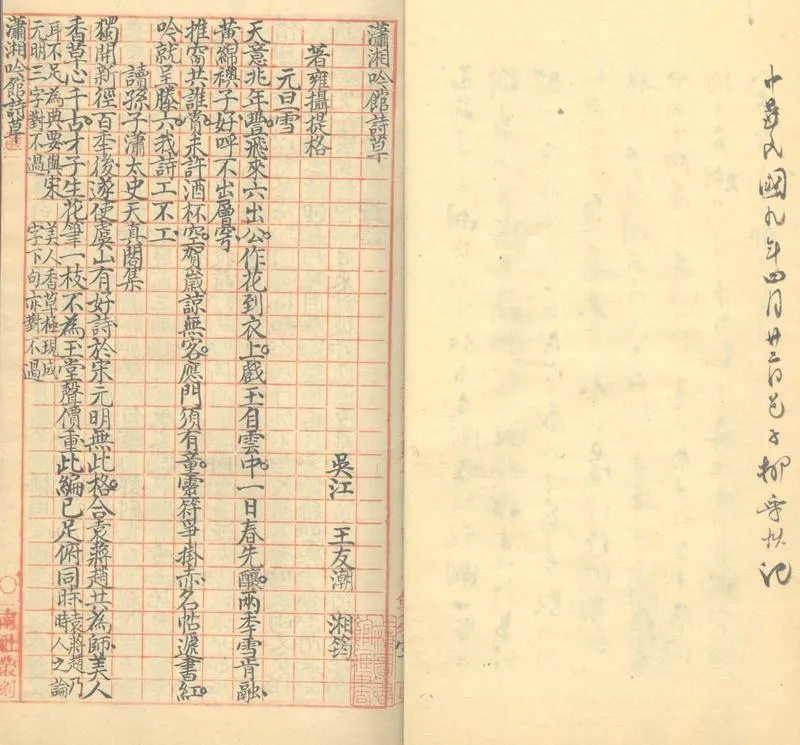 中華民國九年四月廿二日邑子柳棄疾記
瀟湘吟館詩草
吳江 王友潮 湘筠
著雍攝提格
元日雪
天意兆年豐飛來六出公。作花到衣上戲玉自雲中。一日春先釀兩秊雪肯融、
黃綿襖子好呼不出層穹。
推窗共誰賞未許酒杯空。賀歲諒無客應門須有童。靈符爭掛赤名帖遞書紅。
吟就呈滕六我詩工不工
讀孫子瀟太史天真閣集
獨開新徑百秊後遂使虞山有好詩於宋元明無此格。合袁蔣趙共為師、美人
香草心千古才子生花筆一枝不為玉堂聲價重、此編已足俯同時
袁蔣趙乃
時人之論
耳不足為典要與宋
元明三字對不過
美人香草極現成
字下句亦對不過
瀟湘吟館詩草
南社叢刻